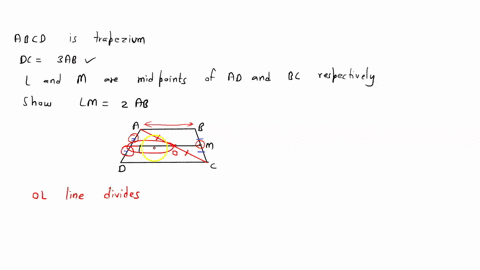 ABCD is trapezium
DC = 3AB ✓
L and M are midpoints of AD and BC respectively
Show LM = 2 AB
A B
M
O
D C
OL line divides